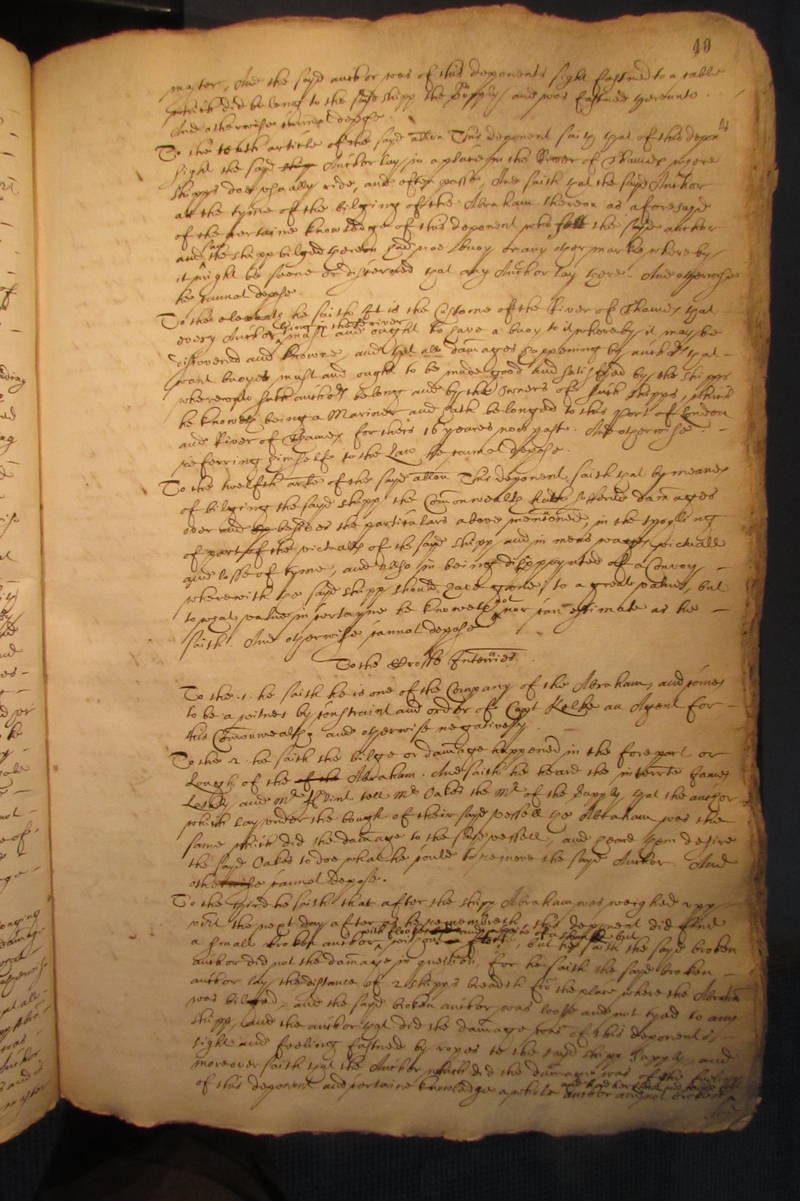 40
master, And the sayd anckor was of this deponents sight fastned to a cable
which did belong to the sayd shipp the Supply, and was fastned thereunto.
And otherwise cannot depose.
To the tenth article of the sayd allon This deponent saith that of this depon:ts
sight the sayd Anckor lay in a place in the River of Thames where
shipps doe usually ride, and often passe, And saith that the sayd Anckor
at the tyme of the bilging of the Abraham thereon as aforesayd
of the certaine knowledge of this deponent who felt the sayd anckor
and the sayd shipp bilged thereon had noe buoy or any other marke whereby
it might be seene or discerned that any Anckor lay there. And otherwise
he cannot depose.
To the eleventh he saith It is the Custome of the River of Thames that
every Anckor lying in the river must and ought to have a buoy to it whereby it may be
discovered and knowne, and that all damages happening by anckors that
want buoyes must and ought to be made good and satisfyed by the shipps
whereunto such anckors belong and by the owners of such shipps, which
he knoweth being a Mariner and hath belonged to this Port of London
and River of Thames for theis 16 yeares now past. And otherwise
referring himselfe to the Law he cannot depose.
To the twelfth arle of the sayd allon This deponent saith that by meanes
of bilging the sayd shipp the Commonwealth hath suffered damages
over and besides the particulars above mentioned, in the spoyling
of part of the victualls of the sayd shipp and in mens wages, victuall
and losse of tyme, and also in being disappoynted of a Convoy
wherewith the sayd shipp should have gone, to a great value, but
to what value in certayne he knoweth not nor can estimate as he
saith. And otherwise cannot depose
To the Crosse Interries.
To the .1. he saith he is one of the Company of the Abraham, and comes
to be a witnes by constraint and order of Capt Kelke an Agent for
this Commonwealth, and otherwise negatively.
To the 2. he saith the bilge or damage happened in the forepart or
Lough of the Abraham. And saith he heard the interrte James
and Mr tell Mr Oakes the Mr of the Supply that the anckor
which lay under the bough of their sayd vessell the Abraham was the
same which did the damage to the sayd vessell, and heard them desire
the sayd Oakes to doe what he could to remove the sayd Anckor. And
otherwise cannot depose.
To the third he saith that after the shipp Abraham was weighed upp
vizt the next day after as he remembreth this deponent did find
a small broken anckor, but he saith the sayd broken
anckor did not the damage in question, for he saith the sayd broken
anckor lay the distance of 2 shipps breadth from the place where the Abraham
was bilged, and the sayd broken anckor was loose and not tyed to any
shipp, and the anckor that did the damage was of this deponents
sight and feeling fastned by ropes to the sayd shipp Supply, and
moreover saith that the Anckor which did the damage was of this
of this deponent and certaine knowledge a whole anckor and not broken